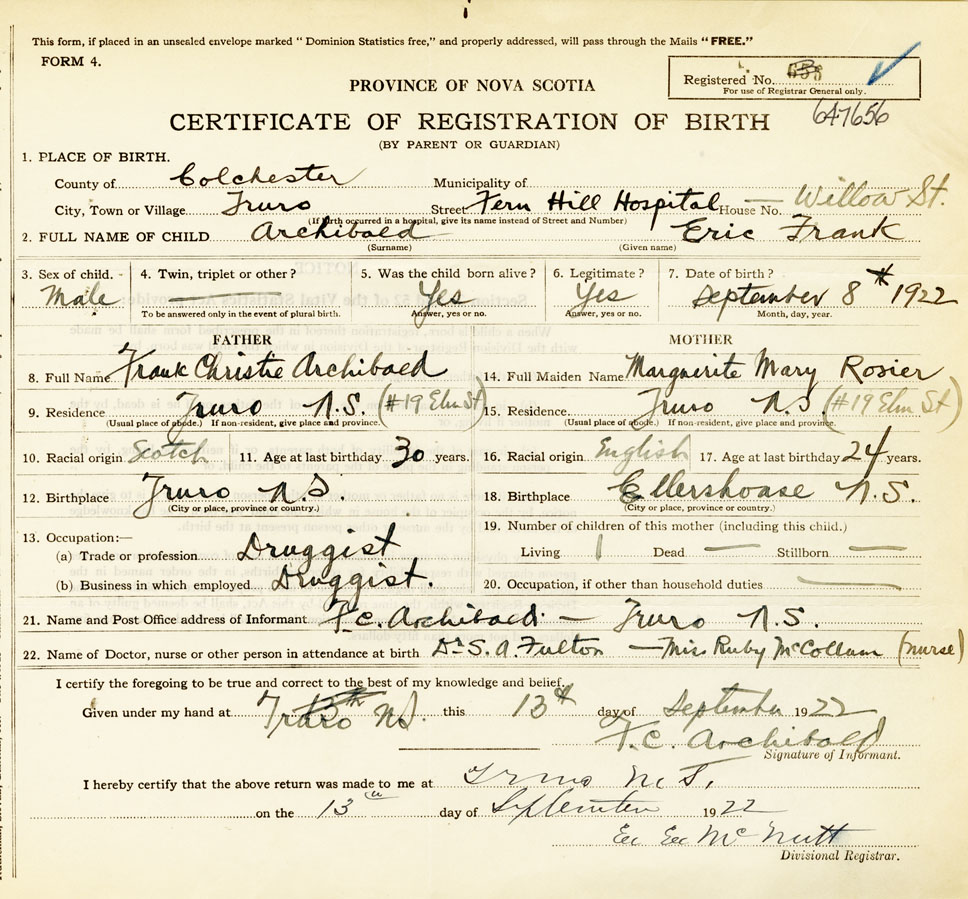 This form, if placed in an unsealed envelope marked "Dominion Statistics free," and properly addressed, will pass through the Mails "FREE."
FORM 4.
Registered No. 656
For use of Registrar General only.
PROVINCE OF NOVA SCOTIA
647656
CERTIFICATE OF REGISTRATION OF BIRTH
(BY PARENT OR GUARDIAN)
1. PLACE OF BIRTH.
County of Colchester Municipality of
City, Town or Village Truro Street Fern Hill Hospital House No. — Willow St.
(If birth occurred in a hospital, give its name instead of Street and Number)
2. FULL NAME OF CHILD Archibald Eric Frank
(Surname) (Given name)
3. Sex of child. - 4. Twin, triplet or other? 5. Was the child born alive? 6. Legitimate? 7. Date of birth?
Male — Yes Yes September 8th 1922
To be answered only in the event of plural birth. Answer, yes or no. Answer, yes or no. Month, day, year.
FATHER MOTHER
8. Full Name Frank Christie Archibald 14. Full Maiden Name Marguerite Mary Rosier
9. Residence Truro N.S. (#19 Elm St) 15. Residence. Truro N.S. (#19 Elm St)
(Usual place of abode.) If non-resident, give place and province. (Usual place of abode.) If non-resident, give place and province.
10. Racial origin Scotch 11. Age at last birthday 30 years. 16. Racial origin English 17. Age at last birthday 24 years.
12. Birthplace Truro N.S. 18. Birthplace Ellershouse N.S.
(City or place, province or country.) (City or place, province or country.)
19. Number of children of this mother (including this child.)
13. Occupation:—
(a) Trade or profession Druggist Living 1 Dead — Stillborn —
(b) Business in which employed Druggist. 20. Occupation, if other than household duties —
21. Name and Post Office address of Informant F.C. Archibald — Truro N.S.
22. Name of Doctor, nurse or other person in attendance at birth Dr S. A. Fulton — Miss Ruby McCollum (nurse)
I certify the foregoing to be true and correct to the best of my knowledge and belief.
Given under my hand at Truro N.S. this 13th day of September 1922
F.C. Archibald
Signature of Informant.
I hereby certify that the above return was made to me at Truro N.S.
on the 13th day of September 1922
McNutt
Divisional Registrar.